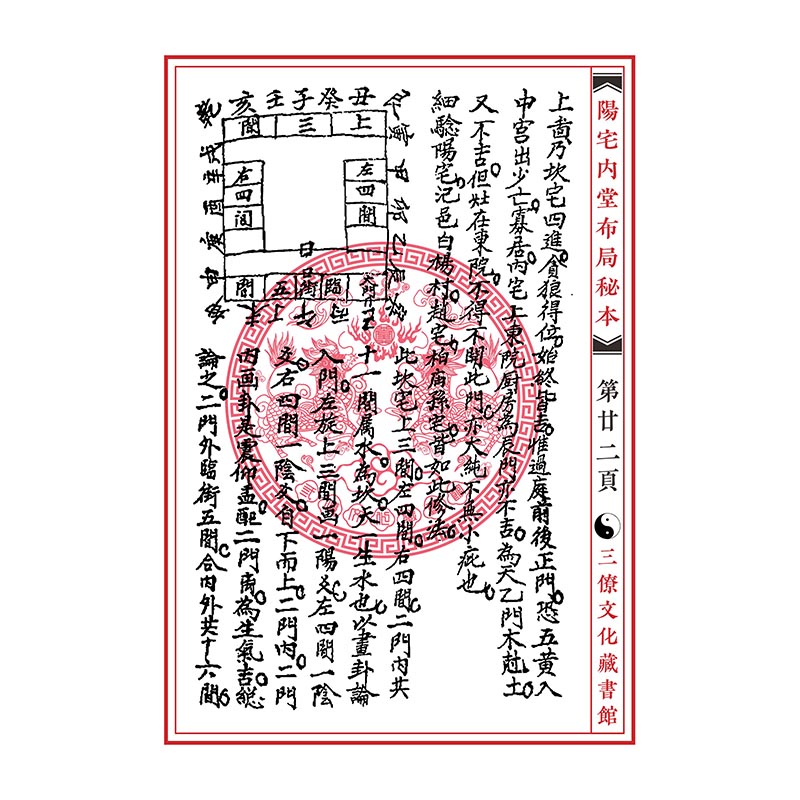 陽宅内堂布局秘本
第廿二頁
三僚文化藏書館
上啚乃坎宅四進貪狼得位始終皆吉惟過庭前後正門恐五黃入
中宮出少亡寡居丙宅上東院厨房為辰門亦不吉為天乙門木尅土
又不吉但灶在東院不得不開此門亦大純不無小疵也
細驗陽宅氾邑白楊村趙宅柏庙孫宅皆如此修法
此坎宅上三間左四間右四間二門内共
十一間屬水為坎天一生水也以畫卦論
入門左旋上三間画一陽爻左四間一陰
爻右四間一陰爻自下而上二門内二門
内画卦是震仰盂配二門离為生氣吉縂
論之二門外臨街五間合内外共十六間
亥壬子癸丑
間三上
左四間
右四间
大門
臨街五間
乾戌辛酉庚申
寅甲卯乙辰
丁午丙